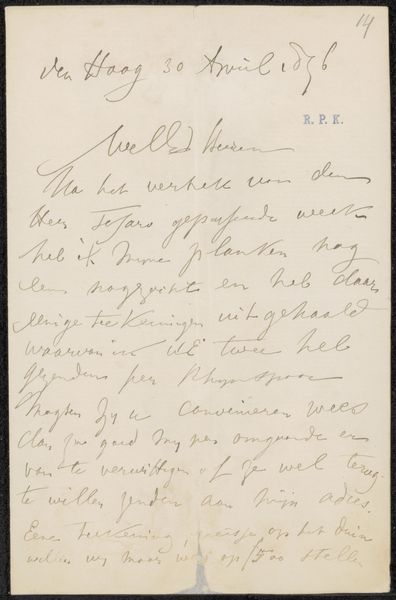 14
den Haag 30 April 1876
R. P. K.
WelEd Heeren
Na het vertrek van den
Heer Tesaro gepasseerde week
heb ik mijne planken nog
eens nagezocht en heb daar
eenige teekeningen uitgehaald
waarvan ik UE twee heb
gezonden per Rhynspoor
Mogten zy u convenieren wees
dan zoo goed my per omgaande er
van te verwittigen of ze wel terug
te willen zenden aan mijn adres.
Eene teekening meisje op het duin
my maar op stellen